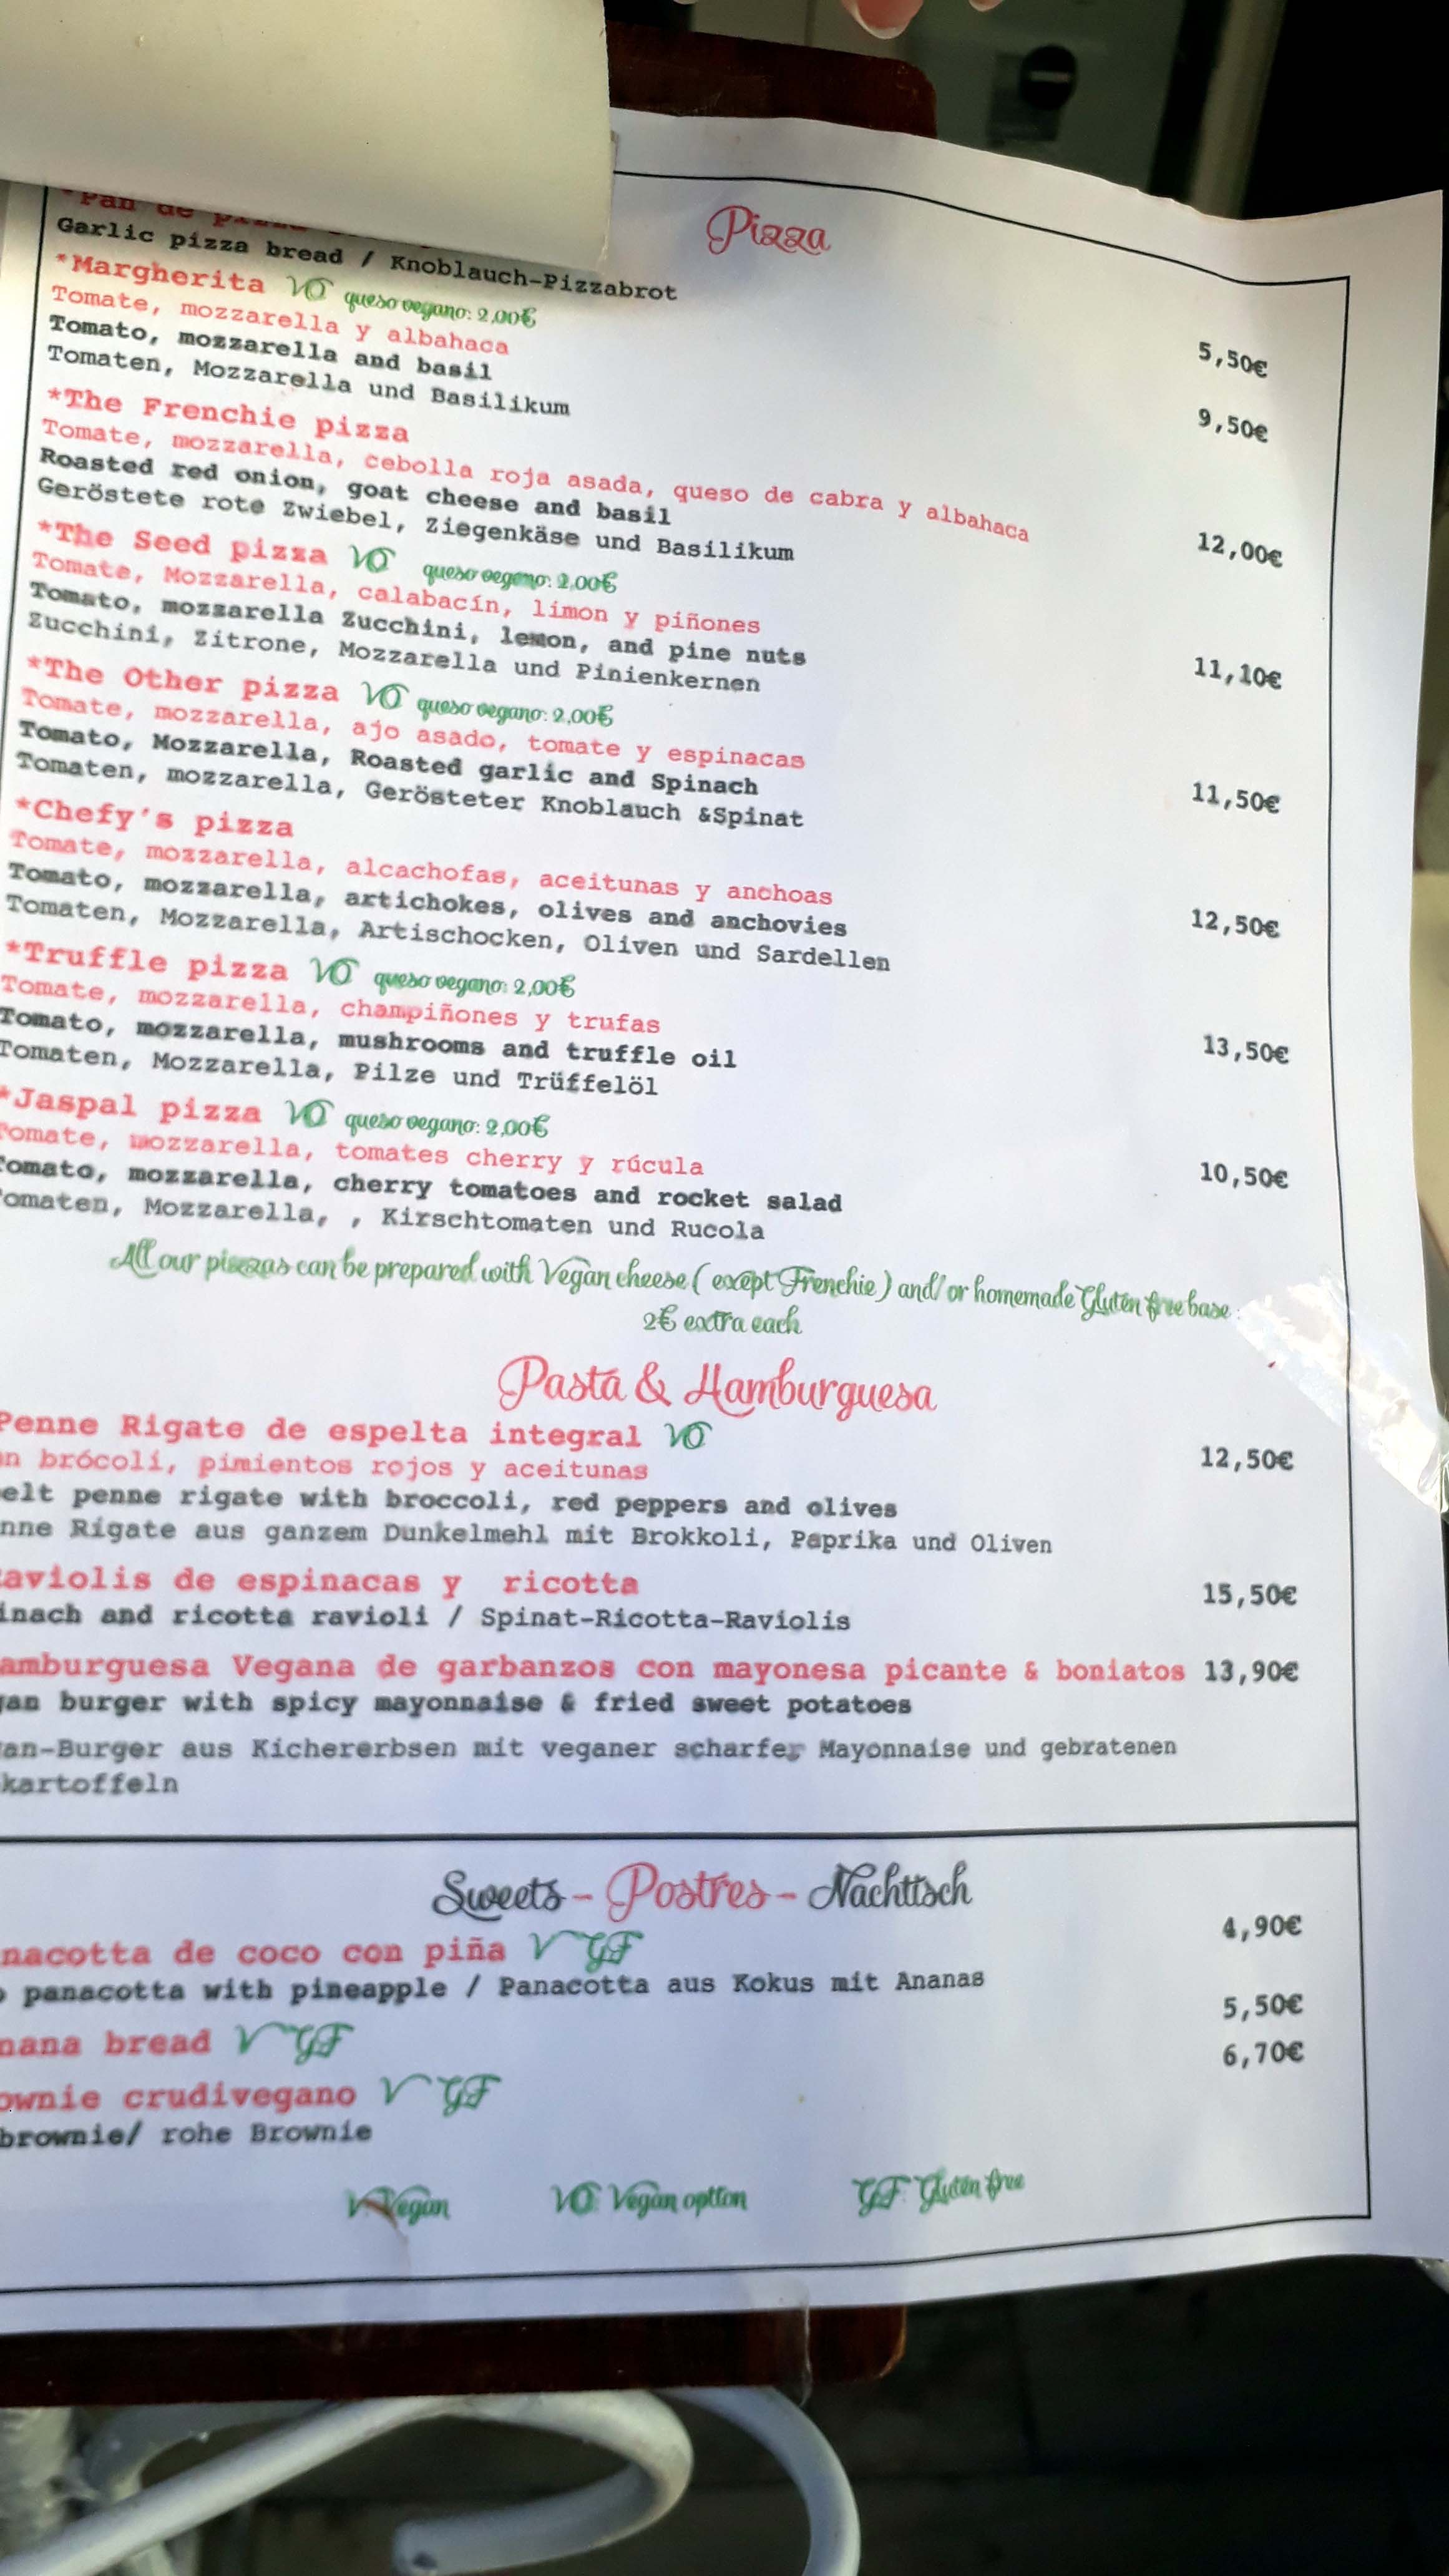 Pizza
*Pan de
Garlic pizza bread / Knoblauch-Pizzabrot
5,50€
*Margherita VO queso vegano: 2,00€
9,50€
Tomate, mozzarella y albahaca
Tomato, mozzarella and basil
Tomaten, Mozzarella und Basilikum
*The Frenchie pizza
12,00€
Tomate, mozzarella, cebolla roja asada, queso de cabra y albahaca
Roasted red onion, goat cheese and basil
Geröstete rote Zwiebel, Ziegenkäse und Basilikum
*The Seed pizza VO queso vegano: 2,00€
11,10€
Tomate, Mozzarella, calabacín, limon y piñones
Tomato, mozzarella Zucchini, lemon, and pine nuts
Zucchini, Zitrone, Mozzarella und Pinienkernen
*The Other pizza VO queso vegano: 2,00€
11,50€
Tomate, mozzarella, ajo asado, tomate y espinacas
Tomato, Mozzarella, Roasted garlic and Spinach
Tomaten, mozzarella, Gerösteter Knoblauch &Spinat
*Chefy's pizza
12,50€
Tomate, mozzarella, alcachofas, aceitunas y anchoas
Tomato, mozzarella, artichokes, olives and anchovies
Tomaten, Mozzarella, Artischocken, Oliven und Sardellen
*Truffle pizza VO queso vegano: 2,00€
13,50€
Tomate, mozzarella, champiñones y trufas
Tomato, mozzarella, mushrooms and truffle oil
Tomaten, Mozzarella, Pilze und Trüffelöl
*Jaspal pizza VO queso vegano: 2,00€
10,50€
Tomate, mozzarella, tomates cherry y rúcula
Tomato, mozzarella, cherry tomatoes and rocket salad
omaten, Mozzarella, , Kirschtomaten und Rucola
All our pizzas can be prepared with Vegan cheese ( except Frenchie ) and/ or homemade Gluten free base
2€ extra each
Pasta & Hamburguesa
Penne Rigate de espelta integral VO
12,50€
n brócoli, pimientos rojos y aceitunas
elt penne rigate with broccoli, red peppers and olives
nne Rigate aus ganzem Dunkelmehl mit Brokkoli, Paprika und Oliven
aviolis de espinacas y ricotta
15,50€
inach and ricotta ravioli / Spinat-Ricotta-Raviolis
amburguesa Vegana de garbanzos con mayonesa picante & boniatos 13,90€
an burger with spicy mayonnaise & fried sweet potatoes
an-Burger aus Kichererbsen mit veganer scharfer Mayonnaise und gebratenen
kartoffeln
Sweets - Postres - Nachttsch
nacotta de coco con piña V GF
4,90€
panacotta with pineapple / Panacotta aus Kokus mit Ananas
nana bread V GF
5,50€
ownie crudivegano V GF
6,70€
brownie/ rohe Brownie
V: Vegan VO: Vegan option GF: Gluten free